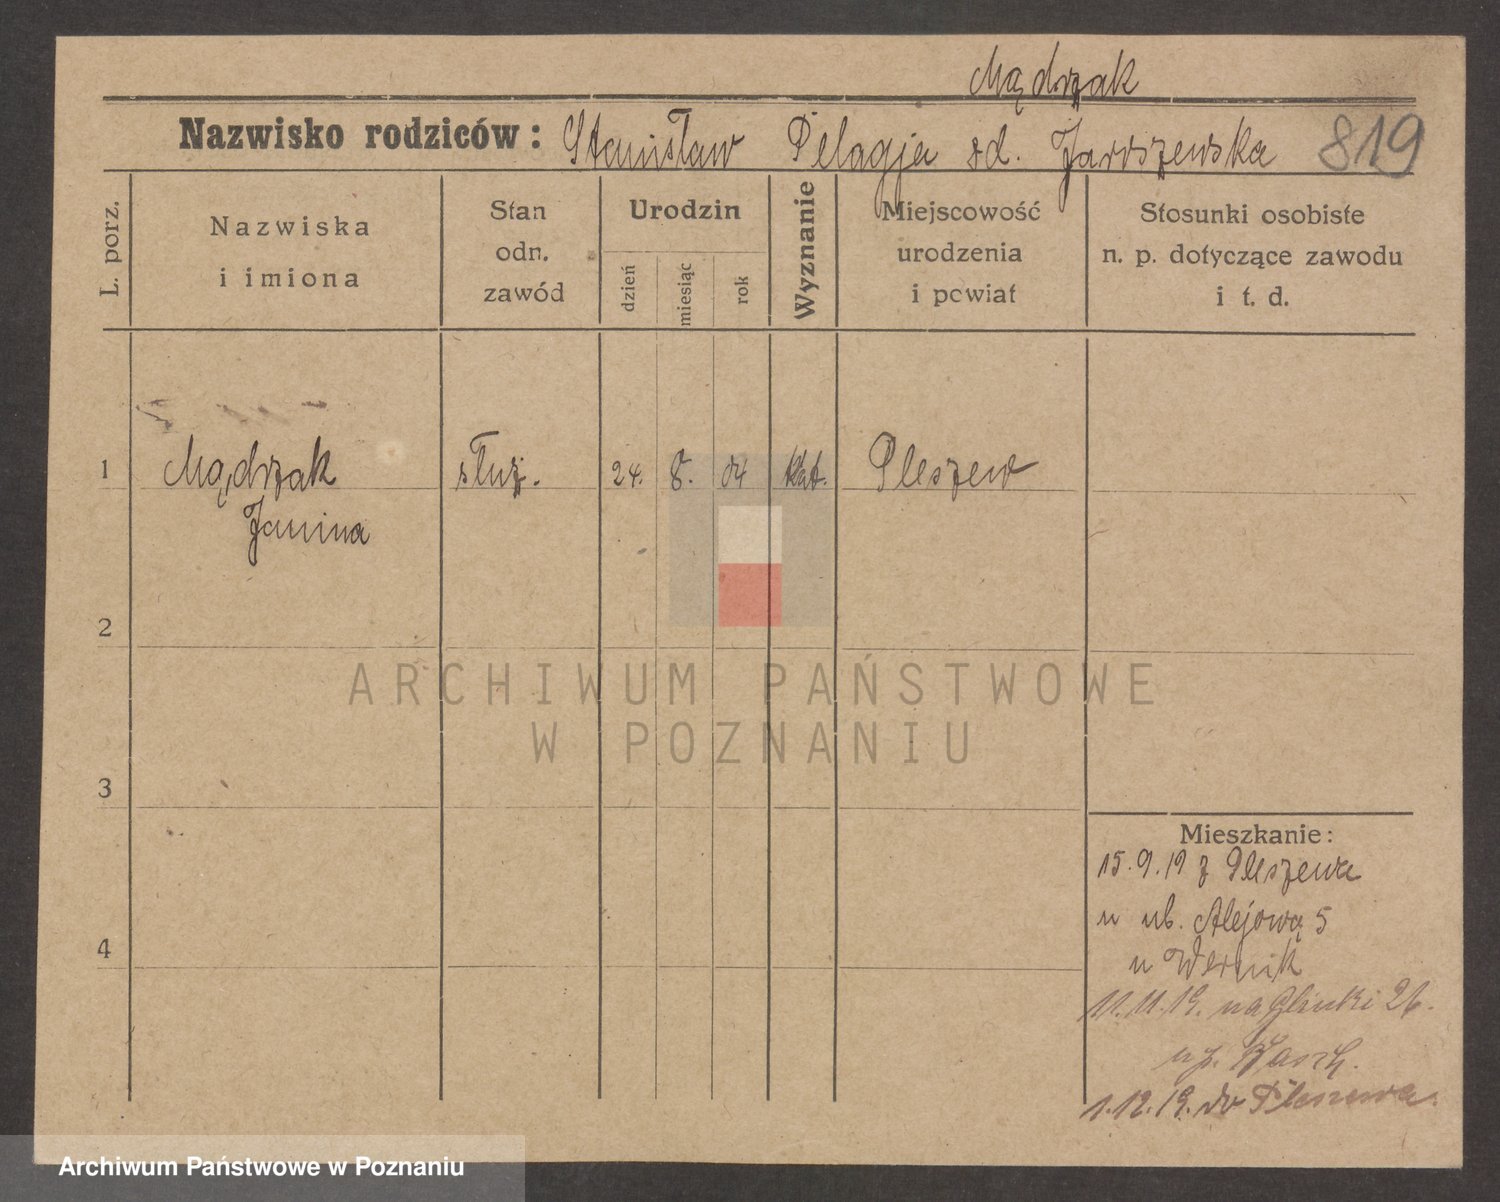 Mądrzak
Nazwisko rodziców: Stanisław Pelagja zd. Jaroszewska 819
L. porz.
Nazwiska
i imiona
Stan
odn.
zawód
Urodzin
dzień
miesiąc
rok
Wyznanie
Miejscowość
urodzenia
i powiat
Stosunki osobiste
n. p. dotyczące zawodu
i t. d.
1 Mądrzak służ. 24. 8. 04 kat. Pleszew
Janina
2
ARCHIWUM PAŃSTWOWE
W POZNANIU
3
Mieszkanie:
15.9.19 z Pleszewa
n ul. Alejową 5
4
u Wernik
11.11.19. na Glinki 26.
u p.
1.12.19. do Pleszewa.
Archiwum Państwowe w Poznaniu